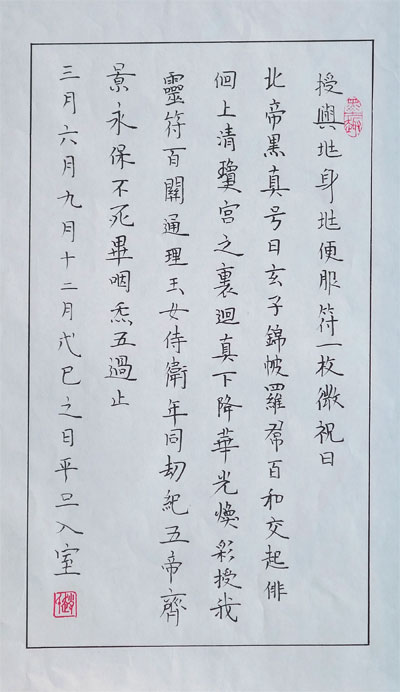 授與地身地便服符一枚微祝曰
北帝黑真号曰玄子錦帔羅帬百和交起俳
佪上清瓊宮之裏迴真下降華光煥彩授我
靈符百關通理玉女侍衛年同劫紀五帝齊
景永保不死畢咽炁五過止
三月六月九月十二月戊巳之日平旦入室